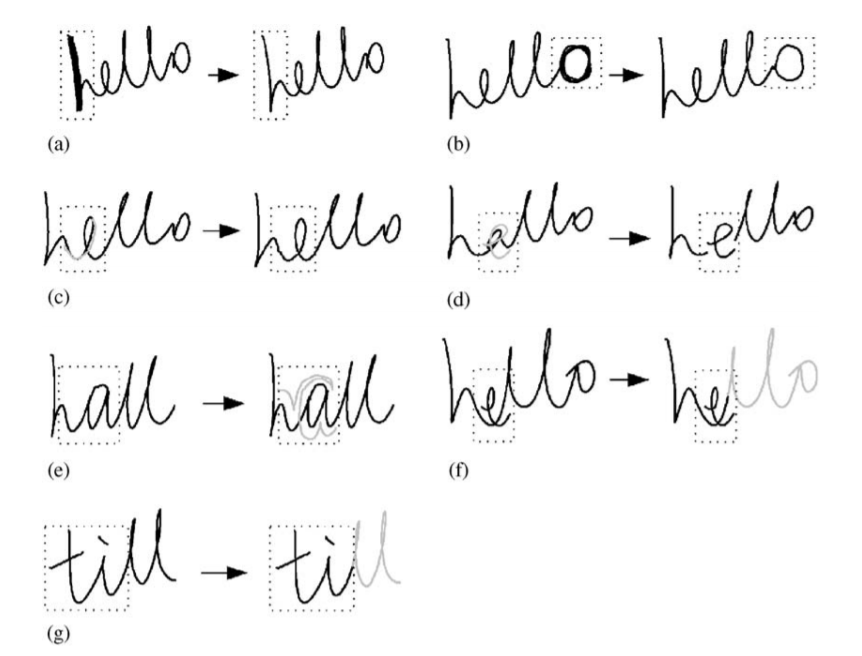 hello hello hello hello
(a) (b)
hello hello hallo hello
(c) (d)
hall hall hello hello
(e) (f)
till till
(g)